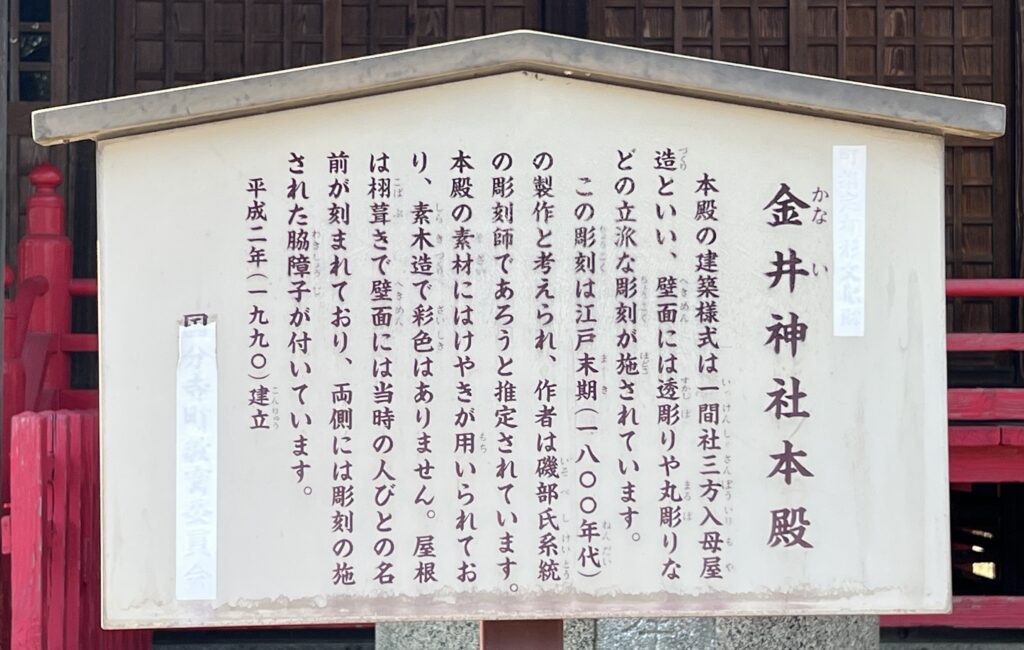 金井神社本殿
かない
本殿の建築様式は一間社三方入母屋
造といい、壁面には透彫りや丸彫りな
どの立派な彫刻が施されています。
この彫刻は江戸末期(一八〇〇年代)
の製作と考えられ、作者は磯部氏系統
の彫刻師であろうと推定されています。
本殿の素材にはけやきが用いられてお
り、素木造で彩色はありません。屋根
は栩葺きで壁面には当時の人びとの名
前が刻まれており、両側には彫刻の施
された脇障子が付いています。
平成二年(一九九〇)建立
国分寺町教育委員会